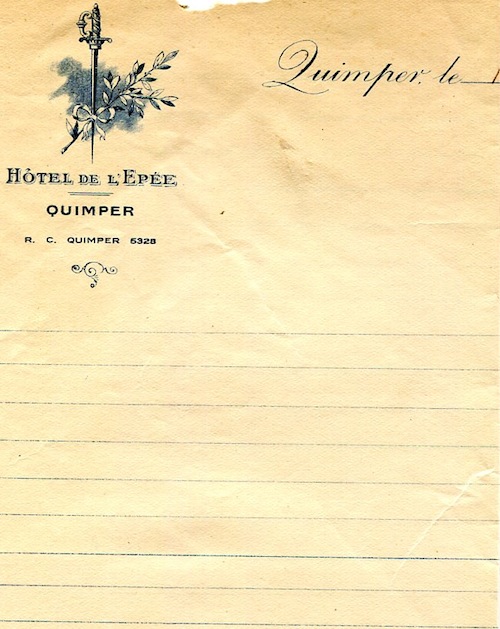 Quimper, le
HÔTEL DE L'EPÉE
QUIMPER
R. C. QUIMPER 5328